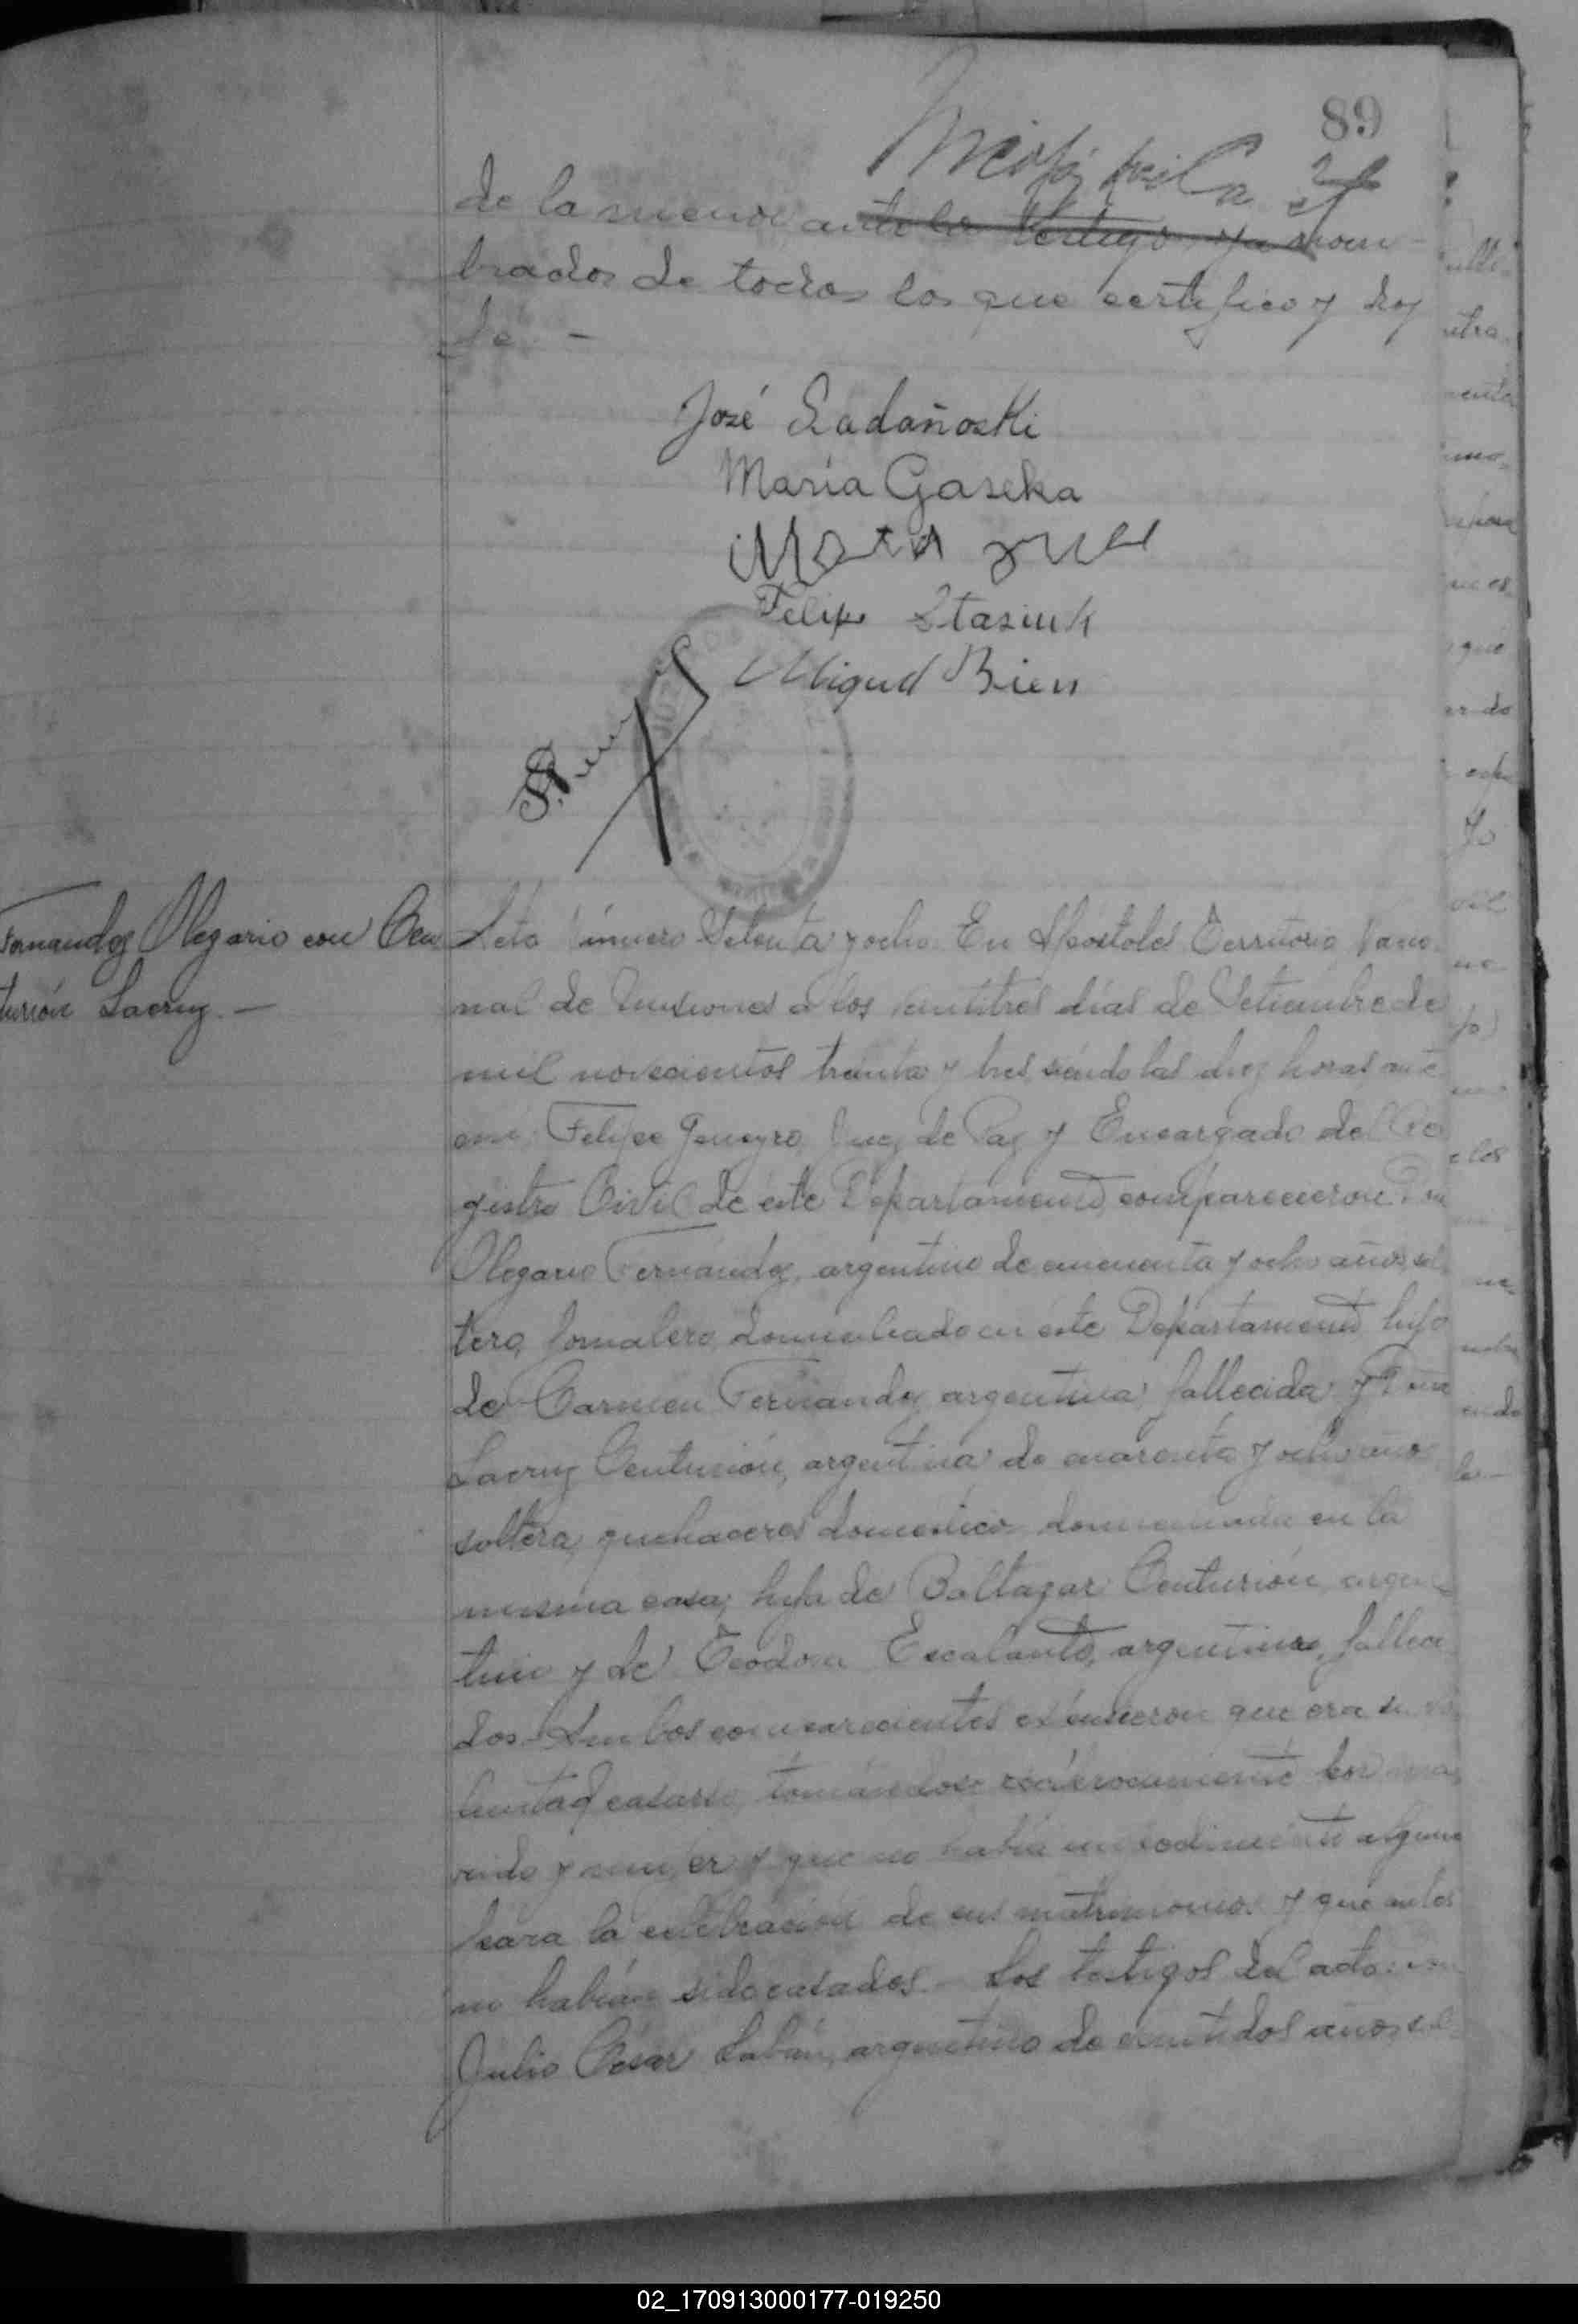 89
de la menor ante los testigos ya nom-
brados de todos los que certifico y doy
fe. -
José Ladañoski
María Gaseka
Felipe Stasiuk
Miguel Bien
Fernandez Olegario con Cen
turión Lacruz. -
Acta número Setenta y ocho. En Apóstoles Territorio Nacio-
nal de Misiones a los veintitres días de Setiembre de
mil novecientos treinta y tres, siendo las diez horas ante
mi, Felipe Juez de Paz y Encargado del Re
gistro Civil de este Departamento, comparecieron Don
Olegario Fernández, argentino de cincuenta y ocho años, sol
tero, Jornalero, domiciliado en este Departamento, hijo
de Carmen Fernandez, argentina, fallecida y Doña
Lacruz Centurión, argentina de cuarenta y ocho años
soltera, quehaceres domésticos domiciliada en la
misma casa, hija de Baltazar Centurión, argen-
tino y de Teodora Escalante, argentina, falleci
dos. Ambos comparecientes expusieron que era su vo
luntad casarse, tomándose recíprocamente por ma
rido y mujer y que no había impedimento alguno
para la celebración de sus matrimonios y que antes
no habían sido casados. - Los testigos del acto: son
Julio César Labán, argentino de veintidos años, sol-
02_170913000177-019250